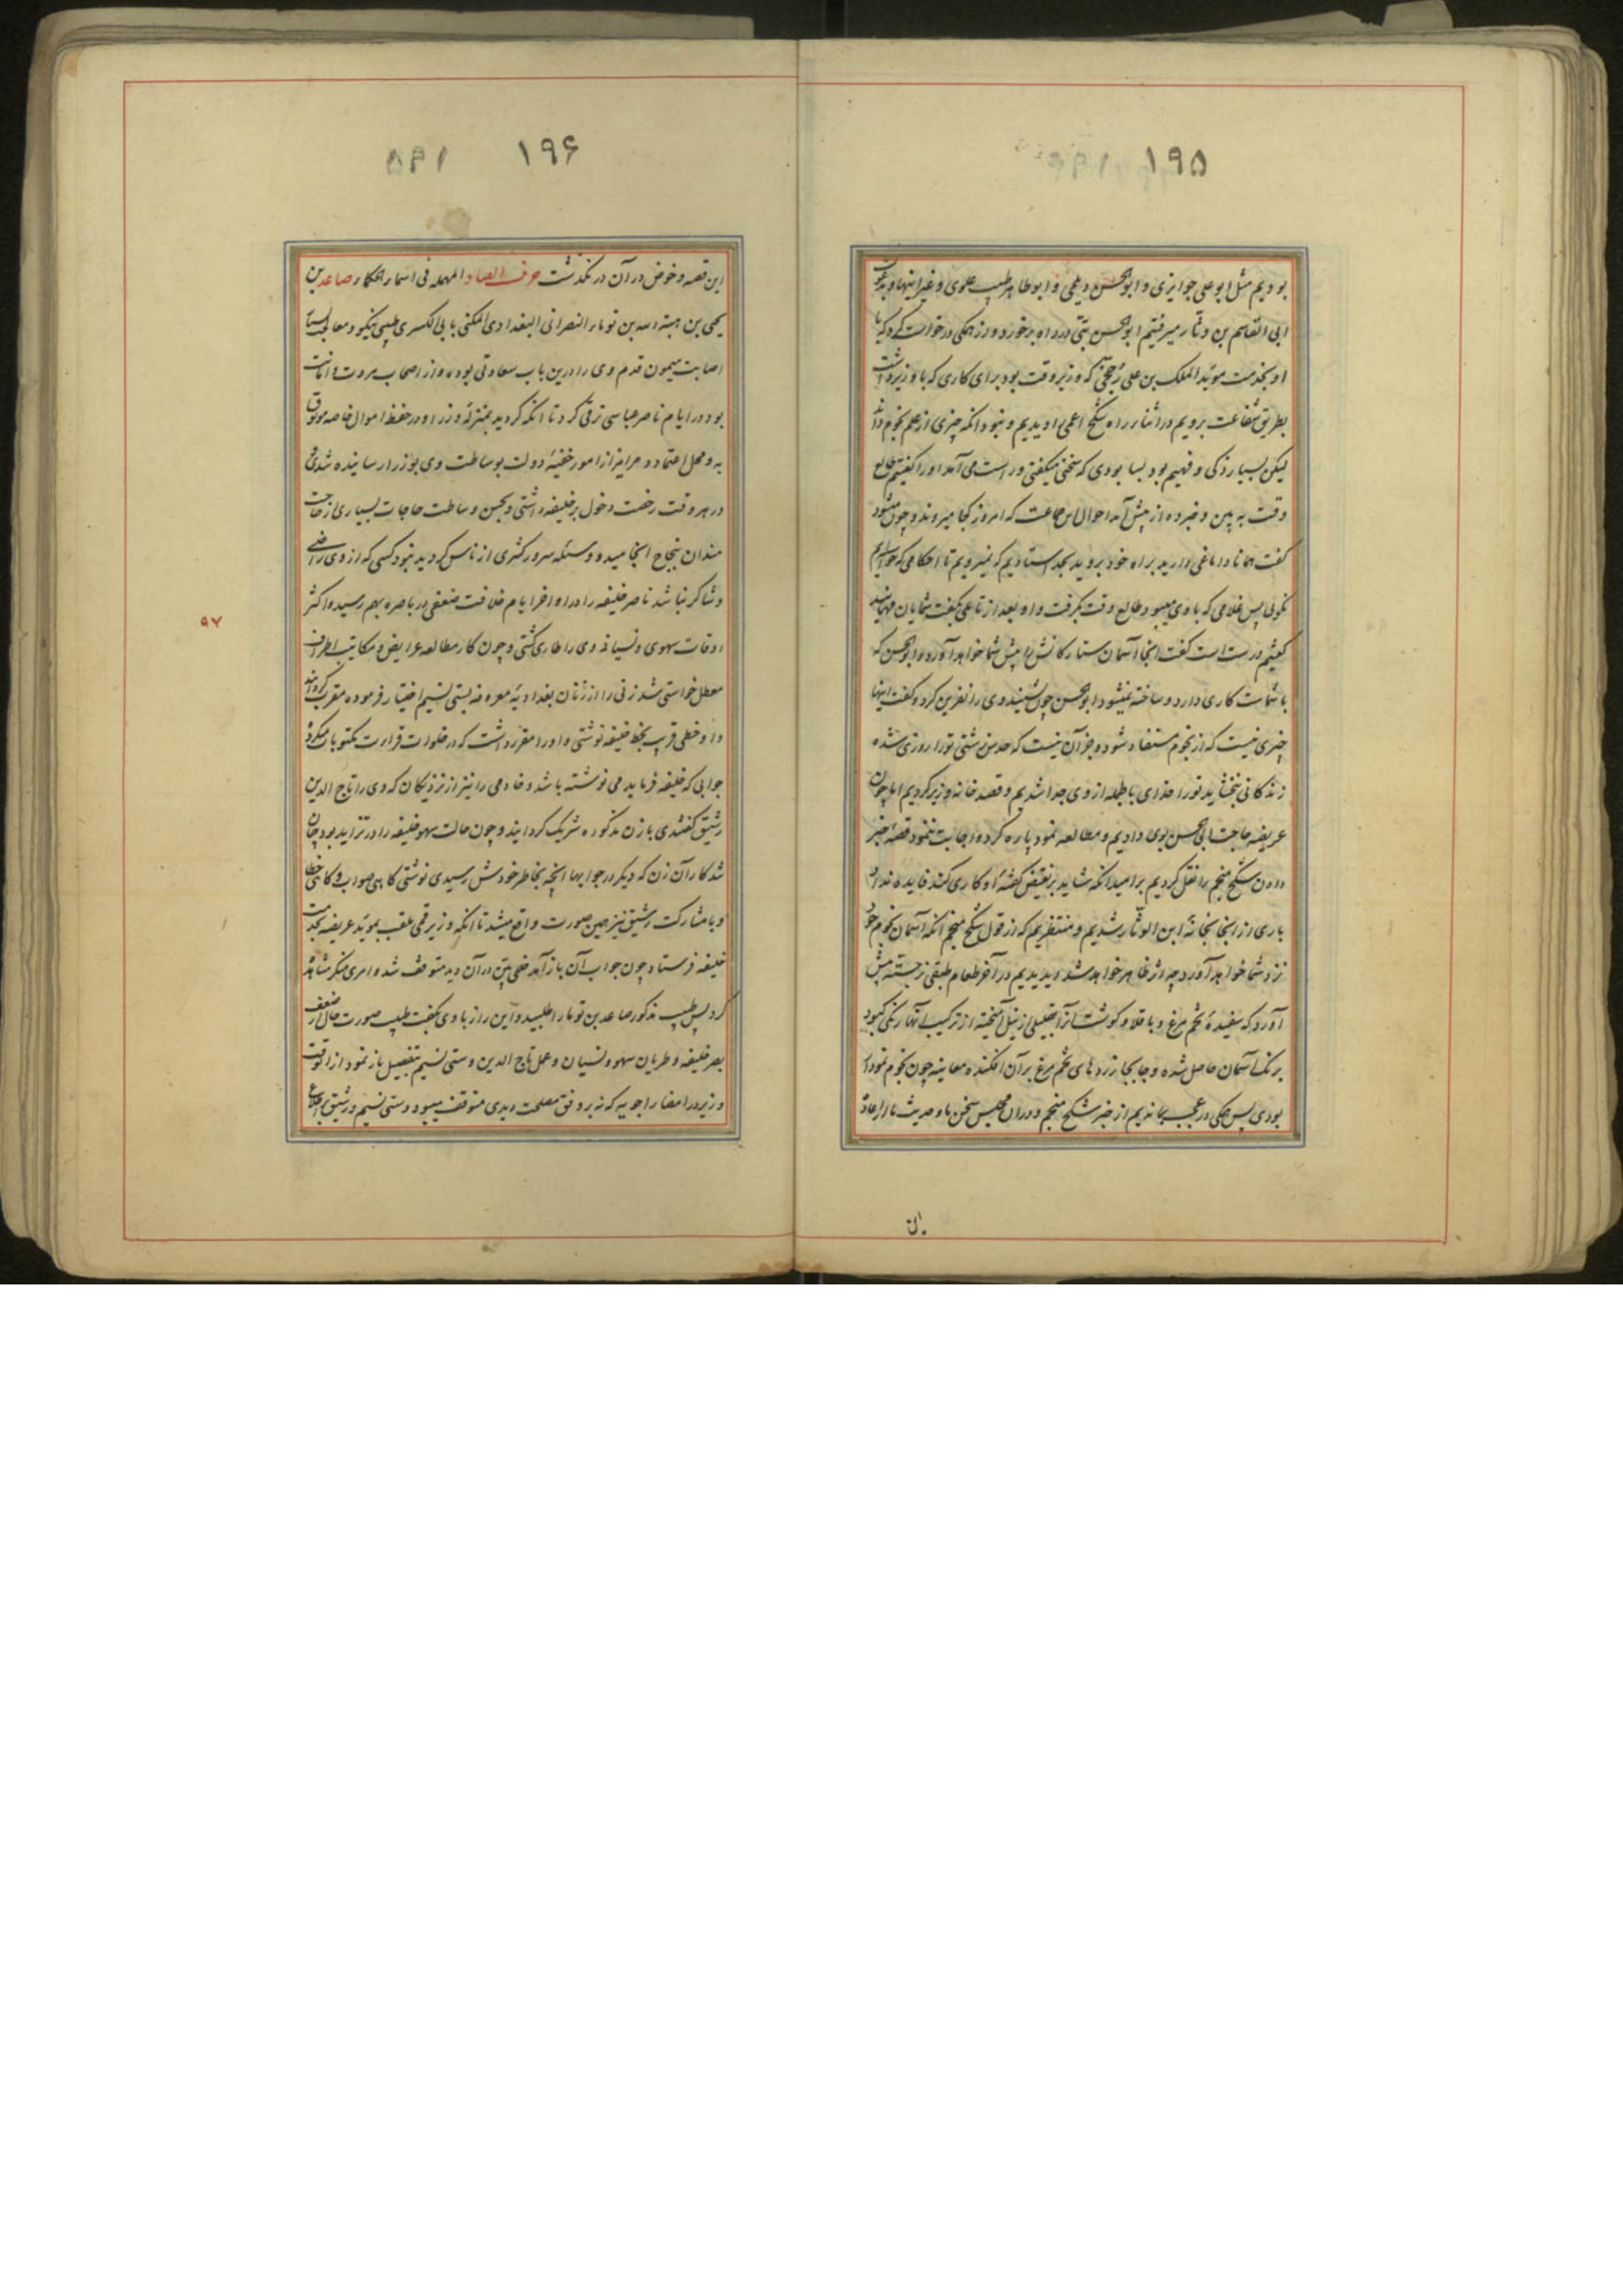 ۱۹۵
بودیم مثل ابو علی جوایزی و ابو الحسن دیلمی و ابو طاهر طبیب علوی و غیر اینها و بدعوت
ابی القاسم بن وثار میرفتیم ابو الحسن بتی در راه برخورد و از همگی درخواست کرد که با
او بخدمت مؤید الملک بن علی رخجی که وزیر وقت بود برای کاری که با وزیر داشت
بطریق شفاعت برویم در اثنار راه شکح اعمی را دیدیم و نبود انکه چیزی از علم نجوم داند
لیکن بسیار زکی و فهیم بود بسا بودی که سخنی میکفتی و راست می آمد او را کفتیم طالع
وقت به بین و خبر ده از پیش آمد احوال این جماعت که امروز کجا میروند و چون میشود
کفت همانا دماغی دارید براه خود بروید بجد استادیم که نمیرویم تا احکامی که خواهیم
نکوئی پس غلامی که با وی میبود طالع وقت بکرفت و او بعد از تاملی کفت شمایان مهمانید
کفتیم درست است کفت اینجا آسمان ستارکانش را پیش شما خواهد آورد و ابو الحسن که
با شماست کاری دارد و ساخته نمیشود ابو الحسن چون شنید وی را نفرین کرد و کفت اینها
چیزی نیست که از نجوم مستفاد شود و جز آن نیست که حدس زشتی تو را روزی شده
زندکانی نبخشاید تو را خدای بالجمله از وی جدا شدیم و قصد خانه وزیر کردیم اما چون
عریضه حاجت ابی الحسن بوی دادیم و مطالعه نمود پاره کرد و اجابت ننمود قصه خبر
دادن شکح منجم را نقل کردیم بر امید انکه شاید بر نقیض کفته او کاری کند فایده نداد
باری از اینجا بخانه ابن الوثار شدیم و منتظریم که از قول شکح منجم انکه آسمان نجوم خود
نزد شما خواهد آورد چه اثر ظاهر خواهد شد دیدیم در آخر طعام طبقی برجسته پیش
آورد که سفیده تخم مرغ و باقلا و کوشت آن را بقلیلی از نیل آمیخته از ترکیب آنها رنکی کبود
برنک آسمان حاصل شده و جابجا زرده های تخم مرغ بر آن افکنده معاینه چون نجوم نمودار
بودی پس همکی در عجب بماندیم از خبر شکح منجم و در آن مجلس سخن ما و حدیث ما از اعاده
ان
۱۹۶
این قصه و خوض در آن در نکذشت حرف الصاد المهمله فی اسمار الحکمار صاعد بن
یحیی بن هبة الله بن توما النصرانی البغدادی المکنی بابی الکسری طبیبی نیکو و معالجت بسیار
اصابت میمون قدم وی را در این باب سعادتی بوده و از اصحاب مروت و امانت
بود در ایام ناصر عباسی ترقی کرد تا انکه کردید بمنزله وزرا و در حفظ اموال خاصه موثوق
به و محل اعتماد و هر امیز از امور خفیه دولت بوساطت وی بوزرا رسانیده شدی
در هر وقت رخصت دخول بر خلیفه داشتی و بحسن وساطت حاجات بسیاری از حاجت
مندان بنجاح انجامید و وسیله سرور کثیری از ناس کردید نبود کسی که از وی راضی
و شاکر نباشد ناصر خلیفه را در اواخر ایام خلافت ضعفی در باصره بهم رسید و اکثر
اوقات سهوی و نسیانی وی را طاری کشتی و چون کار مطالعه عرایض و مکاتیب اطراف
معطل خواستی شد زنی را از زنان بغدادیه معروفه بستی نسیم اختیار فرموده مقرب کردانید
و او خطی قریب بخط خلیفه نوشتی و او را مقرر داشت که در خلوات قرارت مکتوبات میکرد
جوابی که خلیفه فرماید می نوشته باشد و خادمی را نیز از نزدیکان که وی را تاج الدین
رشیق کفتندی با زن مذکوره شریک کردانید و چون حالت سهو خلیفه را در تزاید بود چنان
شد کار آن زن که دیکر در جوابها انچه بخاطر خودش رسیدی نوشتی کاهی صواب و کاهی خطا
و با مشارکت رشیق نیز همین صورت واقع میشد تا انکه وزیر قمی ملقب بمؤید عریضه بخدمت
خلیفه فرستاد چون جواب آن باز آمد خللی بین در آن دید متوقف شد و امری منکر شاهد
کرد پس طبیب مذکور صاعد بن توما را طلبید و این راز با وی بکفت طبیب صورت حال از ضعف
بصر خلیفه و طریان سهو و نسیان و عمل تاج الدین و ستی نسیم بتفصیل باز نمود از انوقت
وزیر در امضا را جوبه که نه بر وفق مصلحت دیدی متوقف میبود و ستی نسیم و رشیق بر اطلاع
۹۷